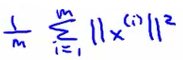 1/m ∑_{i=1}^{m} ||x^{(i)}||²